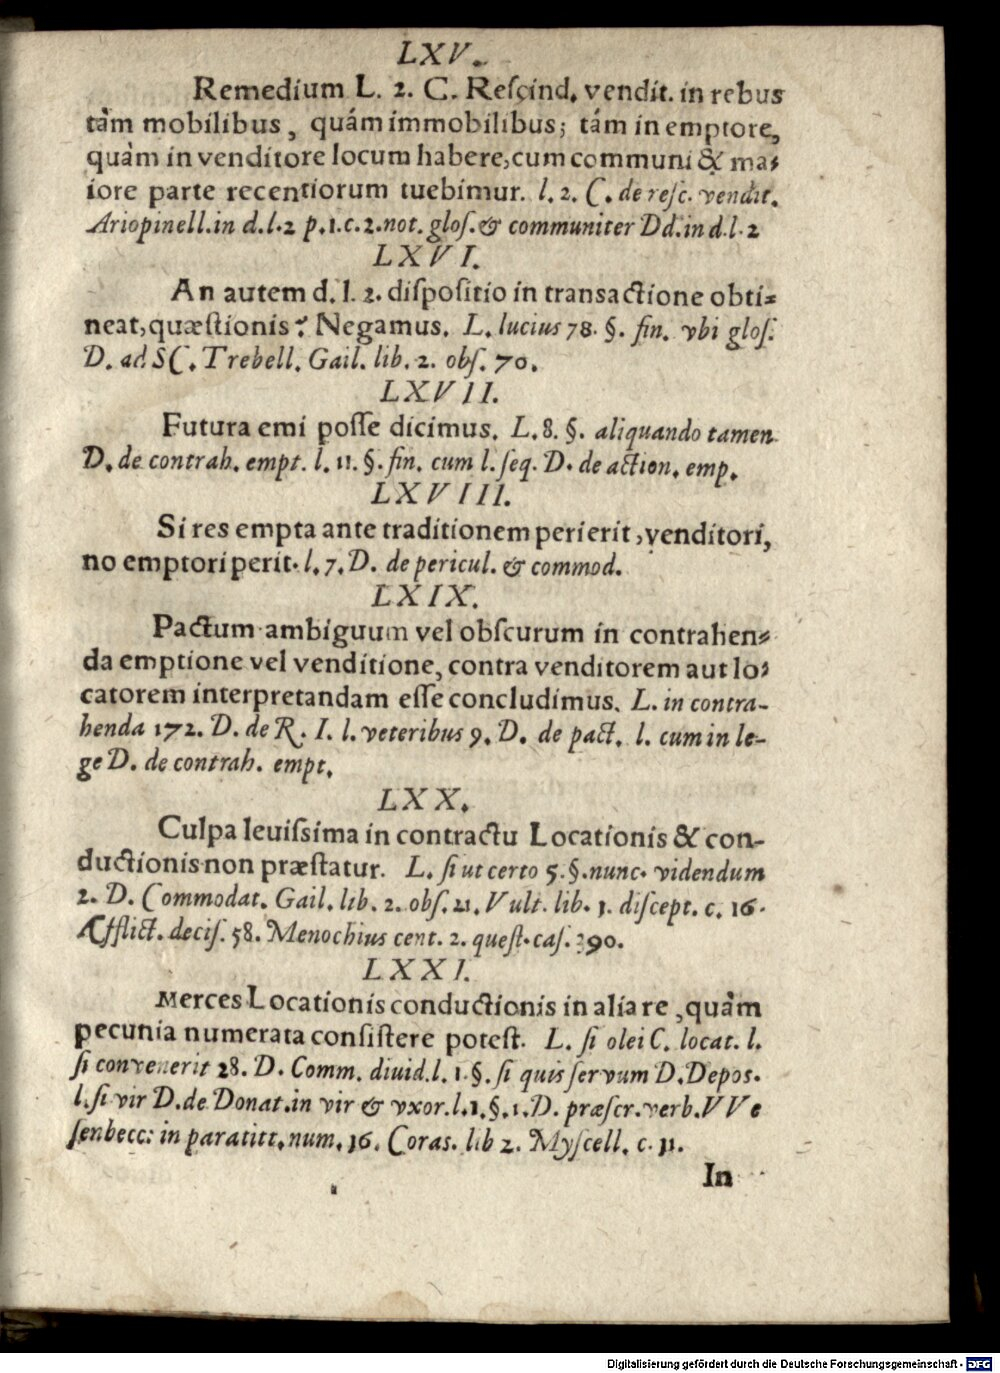 LXV.
Remedium L. 2. C. Reſcind. vendit. in rebus
tàm mobilibus, quám immobilibus; tám in emptore,
quàm in venditore locum habere, cum communi & ma-
iore parte recentiorum tuebimur. l. 2. C. de reſc. vendit.
Ariopinell. in d. l. 2 p. 1. c. 2. not. gloſ. & communiter Dd. in d. l. 2
LXVI.
An autem d. l. 2. diſpoſitio in transactione obti-
neat, quæſtionis? Negamus. L. lucius 78. §. fin. vbi gloſ.
D. ad SC. Trebell. Gail. lib. 2. obſ. 70.
LXVII.
Futura emi poſſe dicimus. L. 8. §. aliquando tamen
D. de contrah. empt. l. 11. §. fin. cum l. ſeq. D. de action. emp.
LXVIII.
Si res empta ante traditionem perierit, venditori,
no emptori perit. l. 7. D. de pericul. & commod.
LXIX.
Pactum ambiguum vel obſcurum in contrahen-
da emptione vel venditione, contra venditorem aut lo-
catorem interpretandam eſſe concludimus. L. in contra-
henda 172. D. de R. I. l. veteribus 9. D. de pact. l. cum in le-
ge D. de contrah. empt.
LXX.
Culpa leuiſsima in contractu Locationis & con-
ductionis non præſtatur. L. ſi ut certo 5. §. nunc. videndum
2. D. Commodat. Gail. lib. 2. obſ. 21. Vult. lib. 1. diſcept. c. 16.
Æfflict. deciſ. 58. Menochius cent. 2. queſt. caſ. 290.
LXXI.
Merces Locationis conductionis in alia re, quàm
pecunia numerata conſiſtere poteſt. L. ſi olei C. locat. l.
ſi convenerit 28. D. Comm. diuid. l. 1. §. ſi quis ſervum D. Depos.
l. ſi vir D. de Donat. in vir & vxor. l. 1. §. 1. D. præſcr. verb. VVe
ſenbecc: in paratitt. num. 16. Coras. lib 2. Myſcell. c. 11.
In
Digitalisierung gefördert durch die Deutsche Forschungsgemeinschaft - DFG